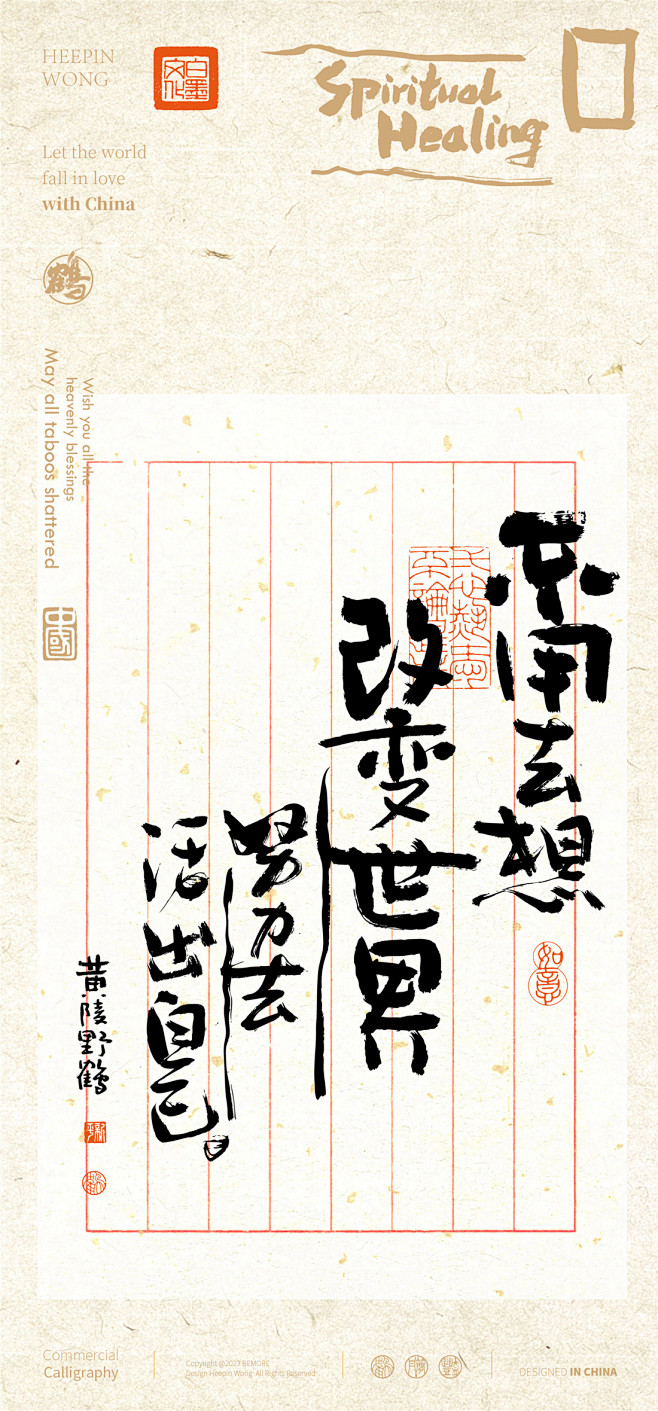 HEEPIN
WONG
白墨
文化
Spiritual
Healing
Let the world
fall in love
with China
鶴
Wish you all the
heavenly blessings
May all taboos shattered
中國
不用去想
改变世界
努力去
活出自己。
如意
黄陵野鶴
Commercial
Calligraphy
Copyright @2023 BEMORE
Design Heepin Wong All Rights Reserved
DESIGNED IN CHINA